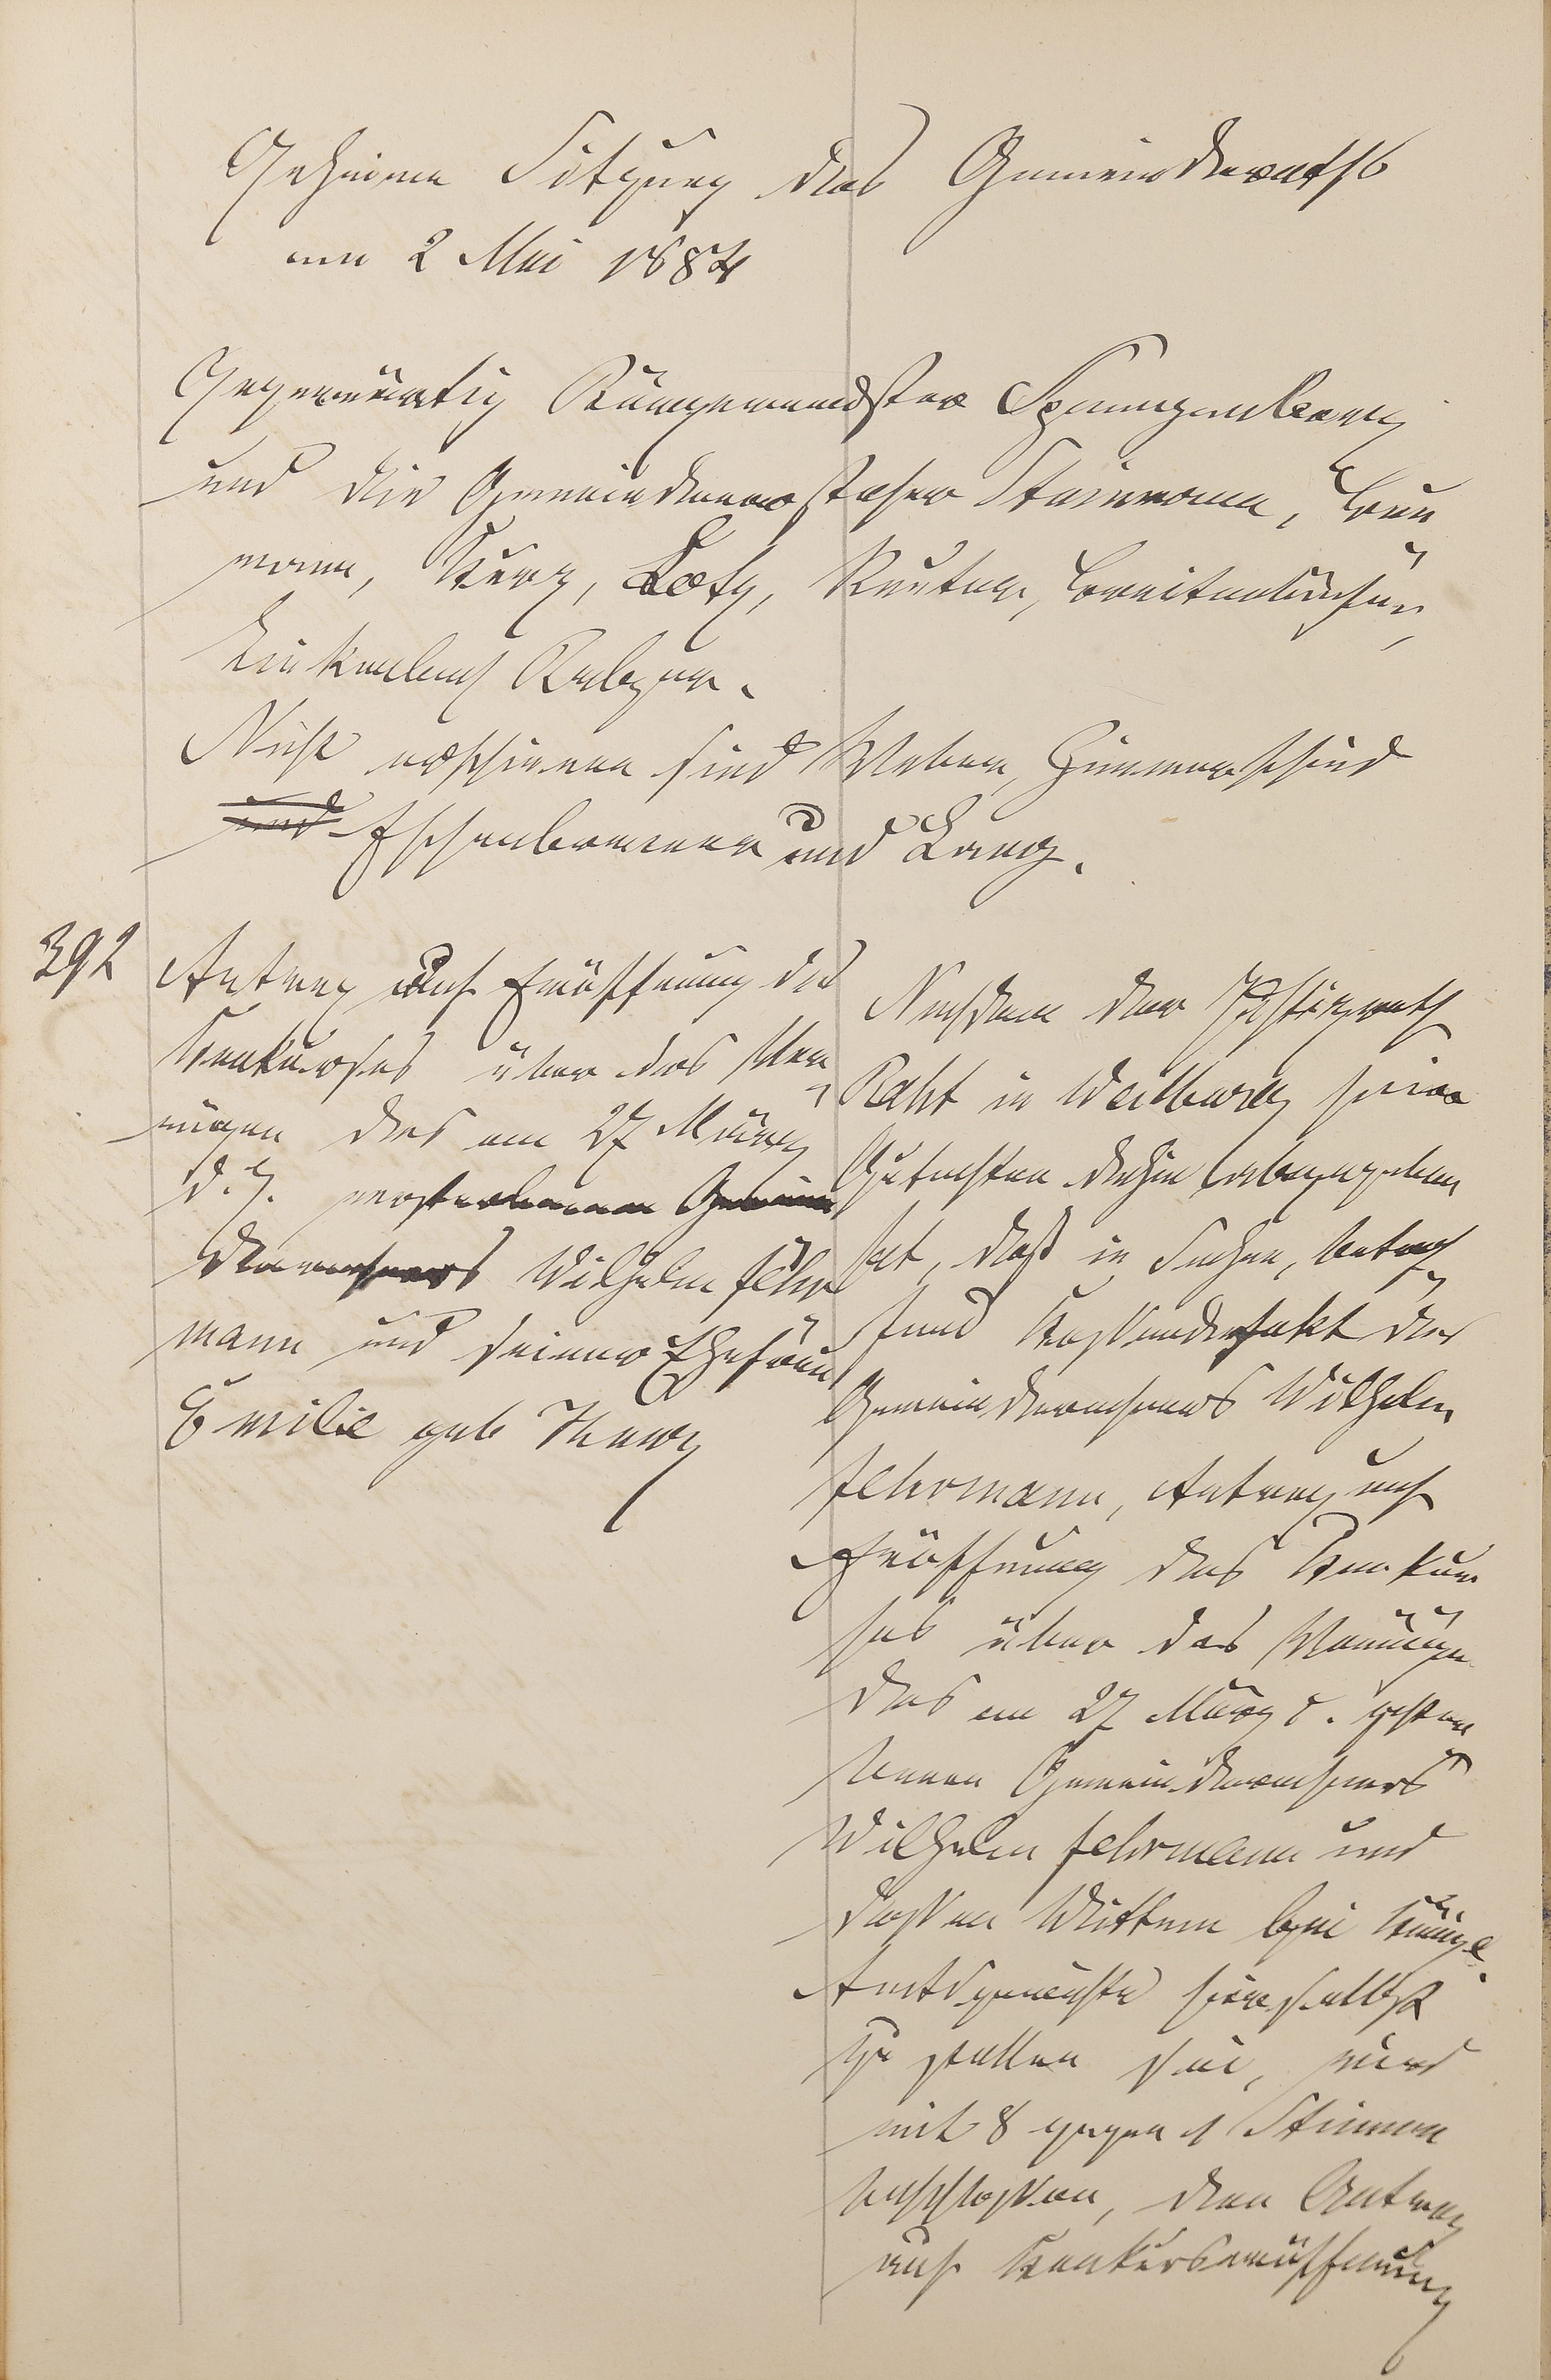 Geheime Sitzung des Gemeinderaths
am 2 Mai 1884
Gegenwärtig Bürgermeister Spangenberg
und die Gemeindevorsteher Steinmann,
mann, Kurz, Lotz, Reuter, Breitenbücher,
Linkenbach Balzer.
Nicht erschienen sind Weber, Himmerschied
und Eschenbrenner und Lang.
392
Antrag auf Eröffnung des
Konkurses über das Ver-
mögen des am 27 März
d. J. verstorbenen Gemein
derechners Wilhelm Fehr
mann und seiner Ehefrau
Emilie geb Thurn
Nachdem der Justizrath
Raht in Weilburg sein
Gutachten dahin abgegeben
hat, daß in Sachen, betref-
fend Kassendefekt des
Gemeinderechners Wilhelm
Fehrmann, Antrag auf
Eröffnung des Konkur
ses über das Vermögen
des am 27 März d. gestor
benen Gemeinderechners
Wilhelm Fehrmann und
dessen Wittwe bei Königl.
Amtsgerichte hierselbst
zu stellen sei, wird
mit 8 gegen 1 Stimmen
beschlossen, den Antrag
auf Konkurseröffnung